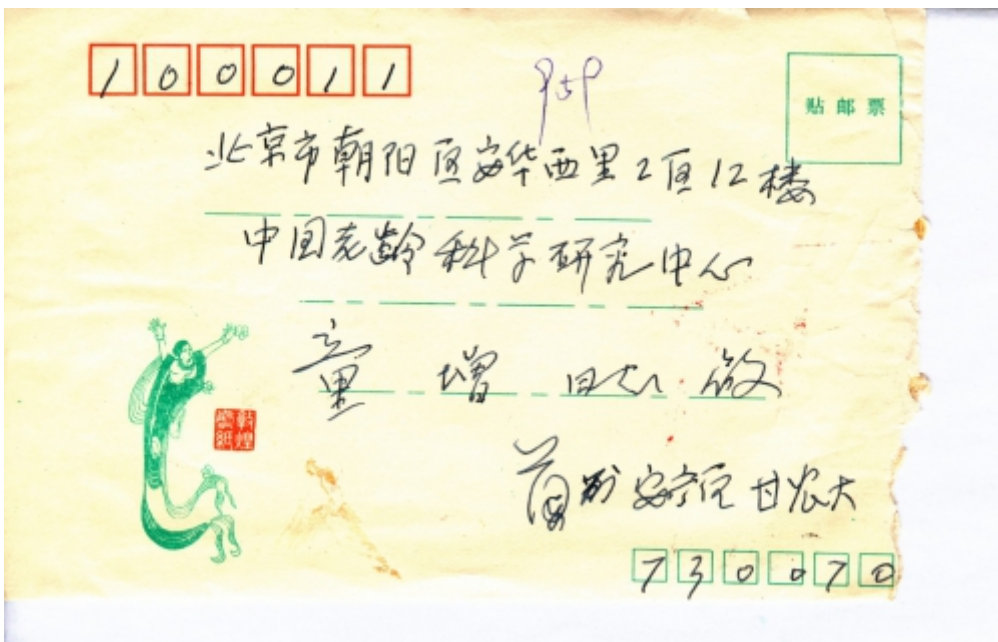 100011
贴邮票
北京市朝阳区安华西里2区12楼
中国老龄科学研究中心
童增同志
敦煌
兰州安宁区甘农大
730070